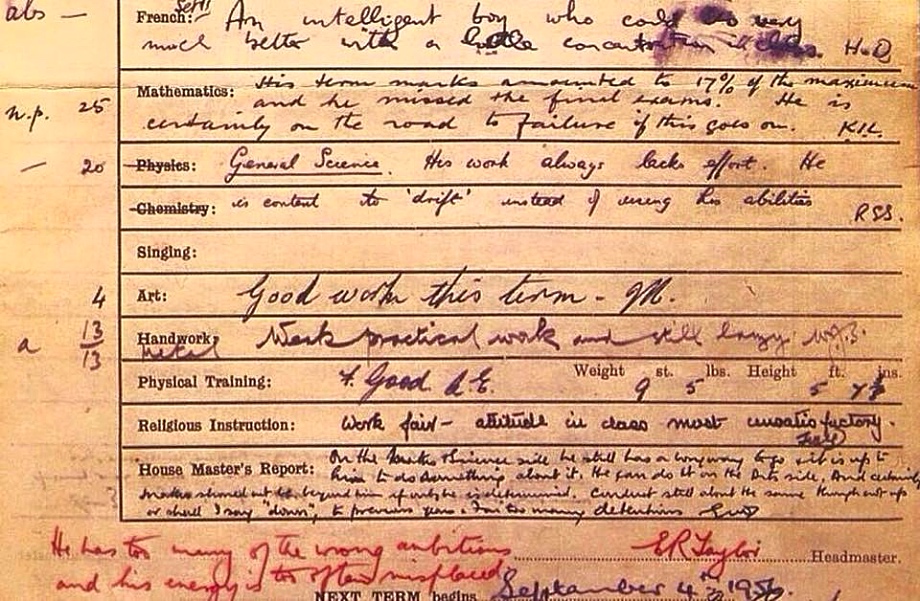 abs —
French: Set II An intelligent boy who could do very
much better with a little concentration in class. H.O
Mathematics: His term marks amounted to 17% of the maximum
n.p. 25 and he missed the final exams. He is
certainly on the road to failure if this goes on.
— 20 Physics: General Science. His work always lacks effort. He
Chemistry: is content to 'drift' instead of using his abilities
RSS.
Singing:
4 Art: Good work this term -
a 13/13 Handwork: Weak practical work and still lazy
Metal
Physical Training: F. Good Weight 9 st. 5 lbs. Height 5 ft. 7½ ins.
Religious Instruction: Work fair - attitude in class most unsatisfactory.
House Master's Report: On the Maths & Science side he still has a long way to go & it is up to
him to do something about it. He can do it on the Arts side. And certainly
Maths should not be beyond him if only he is determined. Conduct still about the same though not up
or shall I say "down", to previous years. Far too many detentions
He has too many of the wrong ambitions E R Taylor Headmaster.
and his energy is too often misplaced
NEXT TERM begins September 4th